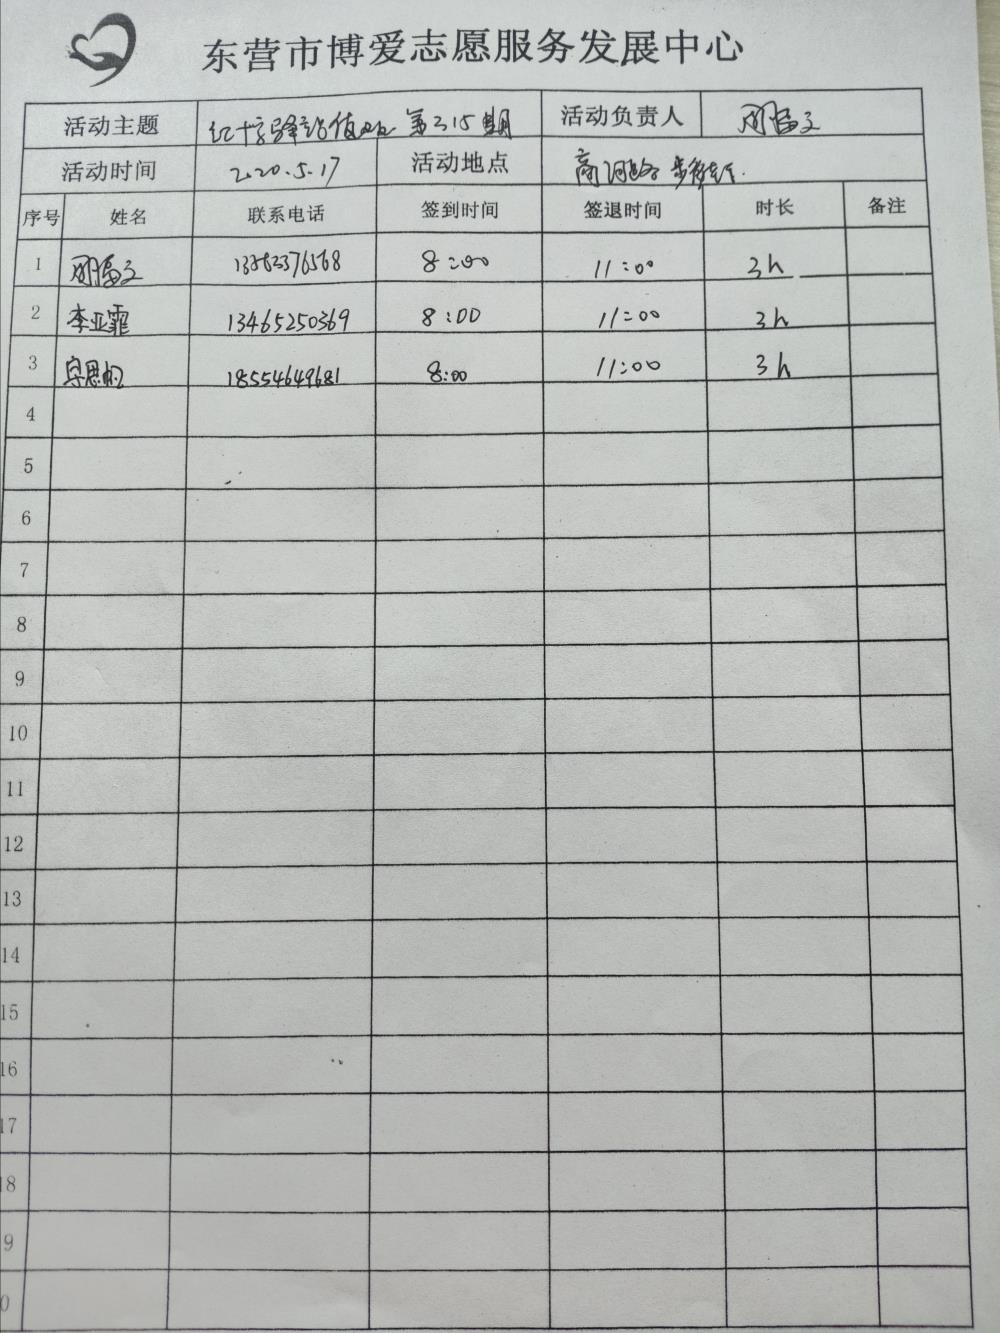 东营市博爱志愿服务发展中心
活动主题 红十字驿站值班 第215期 活动负责人
活动时间 2020.5.17 活动地点 商河路 步行街
序号 姓名 联系电话 签到时间 签退时间 时长 备注
1 8:00 11:00 3h
2 李亚霏 13465250369 8:00 11:00 3h
3 18554649681 8:00 11:00 3h
4
5
6
7
8
9
10
11
12
13
14
15
16
17
18
9
0